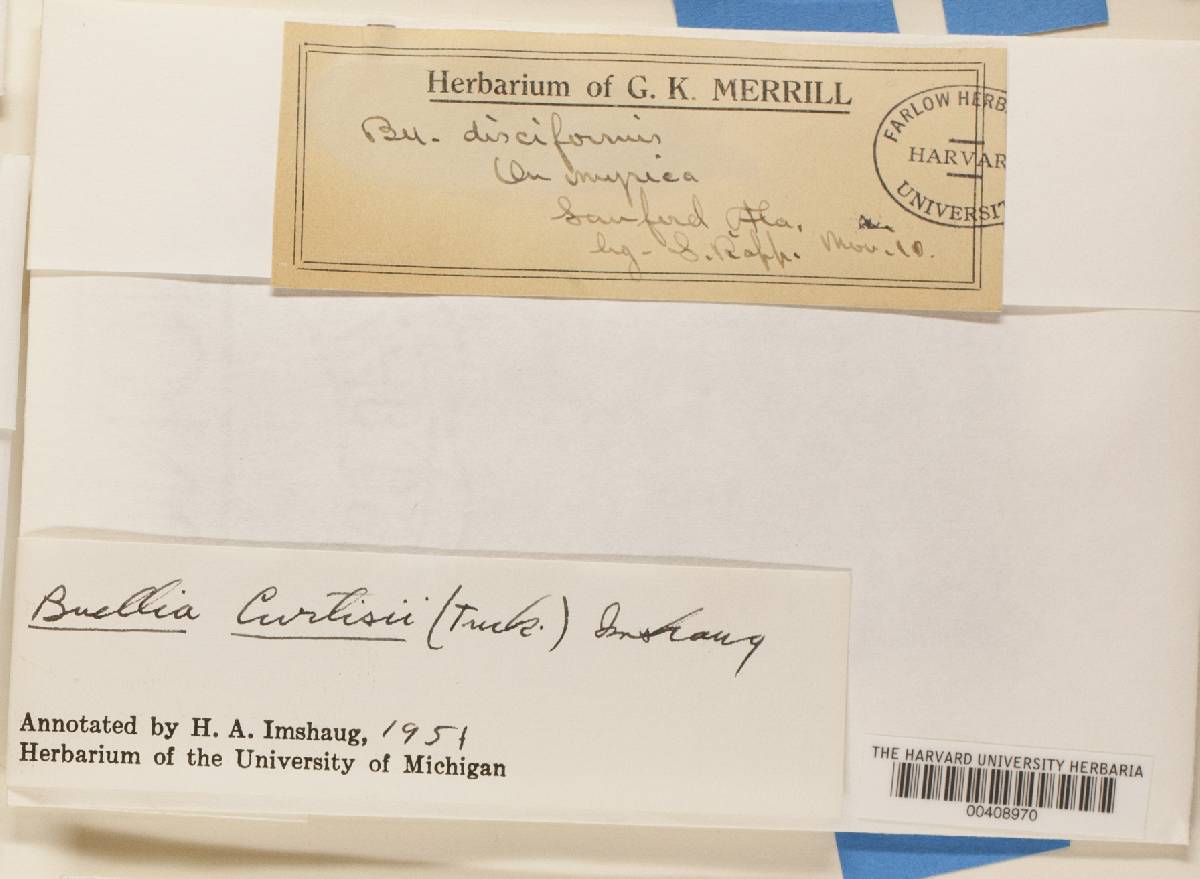 Herbarium of G. K. MERRILL
Bu. disciformis
On myrica
Sanford Fla.
leg- S. Rapp. Nov. 10.
FARLOW HERB
HARVAR
UNIVERSIT
Buellia Curtisii (Tuck.) Imshaug
Annotated by H. A. Imshaug, 1951
Herbarium of the University of Michigan
THE HARVARD UNIVERSITY HERBARIA
00408970